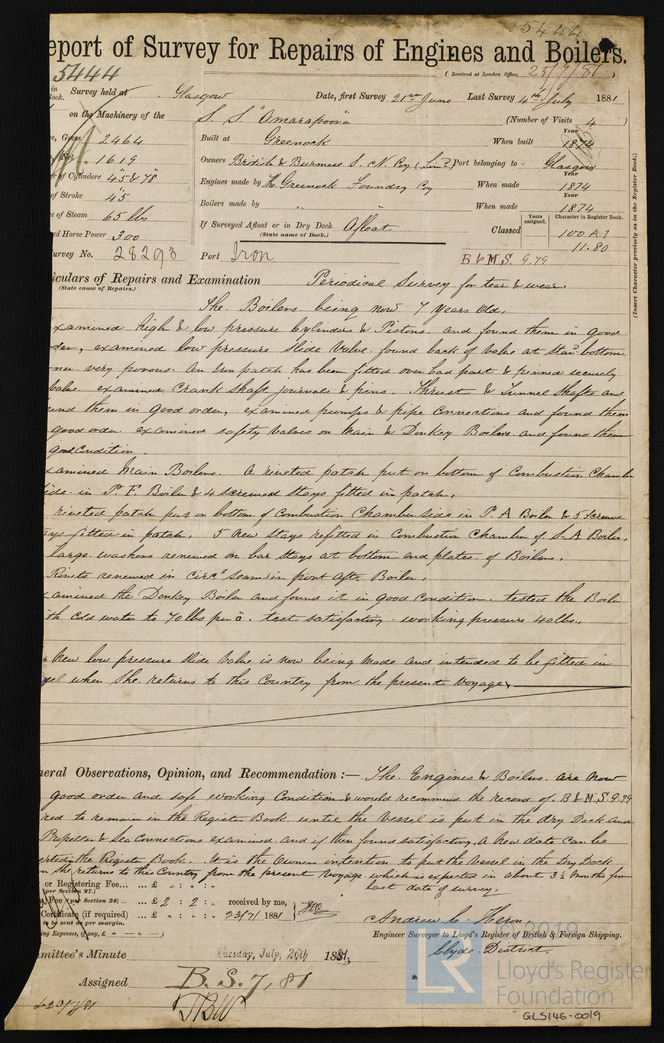 5444
eport of Survey for Repairs of Engines and Boilers.
5444
(Received at London Office, 25/7/81)
Survey held at Glasgow Date, first Survey 21st June Last Survey 4th July 1881
on the Machinery of the S. S. "Amarapoora" (Number of Visits 4)
2464 Built at Greenock When built Year 1874
1619 Owners British & Burmese S. N. Coy (Lim.d) Port belonging to Glasgow
of Cylinders 45 & 78" Engines made by The Greenock Foundry Coy When made Year 1874
of Stroke 45" Boilers made by " " When made Year 1874
e of Steam 65 lbs If Surveyed Afloat or in Dry Dock Afloat
(State name of Dock.)
Classed Years assigned. Character in Register Book. 100 A1
11.80
ed Horse Power 300
urvey No. 28293 Port Iron B & M.S. 9.79
(Insert Character precisely as in the Register Book.)
iculars of Repairs and Examination Periodical Survey for tear & wear.
(State cause of Repairs.)
The Boilers being now 7 years old.
xamined high & low pressure Cylinders & Pistons. and found them in good
der, examined low pressure Slide Valve. found back of Valve at bottom
ner very porous. An Iron patch has been fitted over bad part & pinned securely
Valve. examined Crank Shaft journals & pins. Thrust & Tunnel Shafts and
und them in good order, examined pumps & pipe Connections and found them
good order. examined safety Valves on Main & Donkey Boilers and found them
good Condition.
xamined Main Boilers. A riveted patch put on bottom of Combustion Chamber
ide in P. F. Boiler & 4 screwed Stays fitted in patch.
riveted patch put on bottom of Combustion Chamber side in P. A Boiler & 5 Screwed
ays fitted in patch. 5 New Stays refitted in Combustion Chamber of S. A Boiler.
large washers renewed on bar Stays at bottom end plates of Boilers.
Rivets renewed in Circ.l Seam in port After Boiler.
xamined the Donkey Boiler and found it in good Condition. tested the Boiler
th Cold water to 70 lbs per □". test satisfactory. working pressure 40 lbs.
New low pressure Slide Valve is now being made and intended to be fitted in
el when she returns to this Country from the present Voyage.
neral Observations, Opinion, and Recommendation:— The Engines & Boilers are now
good order and safe working Condition & would recommend the record of B & M.S. 9.79
red to remain in the Register Book until the Vessel is put in the dry Dock and
Propeller & Sea Connections examined and if then found satisfactory, a New date can be
erted in the Register Book. It is the Owners intention to put the Vessel in the Dry Dock
n she returns to this Country from the present Voyage which is expected in about 3½ Months from
last date of survey.
or Registering Fee... ... £ : :
(per Section 27.)
Fee (per Section 28) ... £ 2 : 2 : received by me,
Certificate (if required) ... 23/7/1881
to be sent as per margin.
ing Expenses, if any, £
Andrew C. Heron,
Engineer Surveyor to Lloyd's Register of British & Foreign Shipping.
Clyde District.
mmittee's Minute Tuesday, July, 26th 1881,
Assigned B. S. 7, 81
Lloyd's Register
Foundation
LR
GLS146-0019